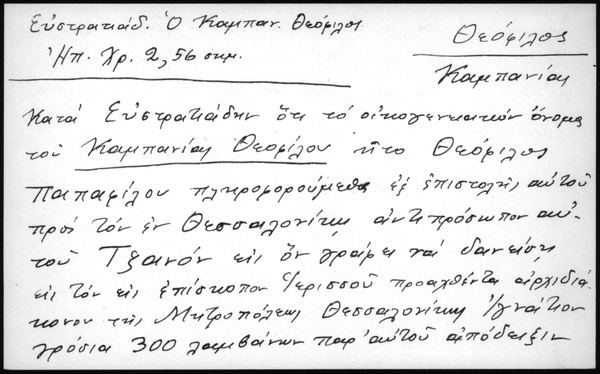 Εὐστρατιάδ. Ὁ Καμπαν. Θεόφιλος
Ἠπ. Χρ. 2, 56 σημ.
Θεόφιλος
Καμπανίας
Κατά Εὐστρατιάδην ὅτι τό οἰκογενειακόν ὄνομα
τοῦ Καμπανίας Θεοφίλου ἦτο Θεόφιλος
Παπαφίλου πληροφορούμεθα ἐξ ἐπιστολῆς αὐτοῦ
πρός τόν ἐν Θεσσαλονίκῃ ἀντιπρόσωπον αὐ-
τοῦ Τζανόν εἰς ὅν γράφει νά δανείσῃ
εἰς τόν εἰς ἐπίσκοπον Ἱερισσοῦ προαχθέντα ἀρχιδιά-
κονον τῆς Μητροπόλεως Θεσσαλονίκης Ἰγνάτιον
γρόσια 300 λαμβάνων παρ' αὐτοῦ ἀπόδειξιν